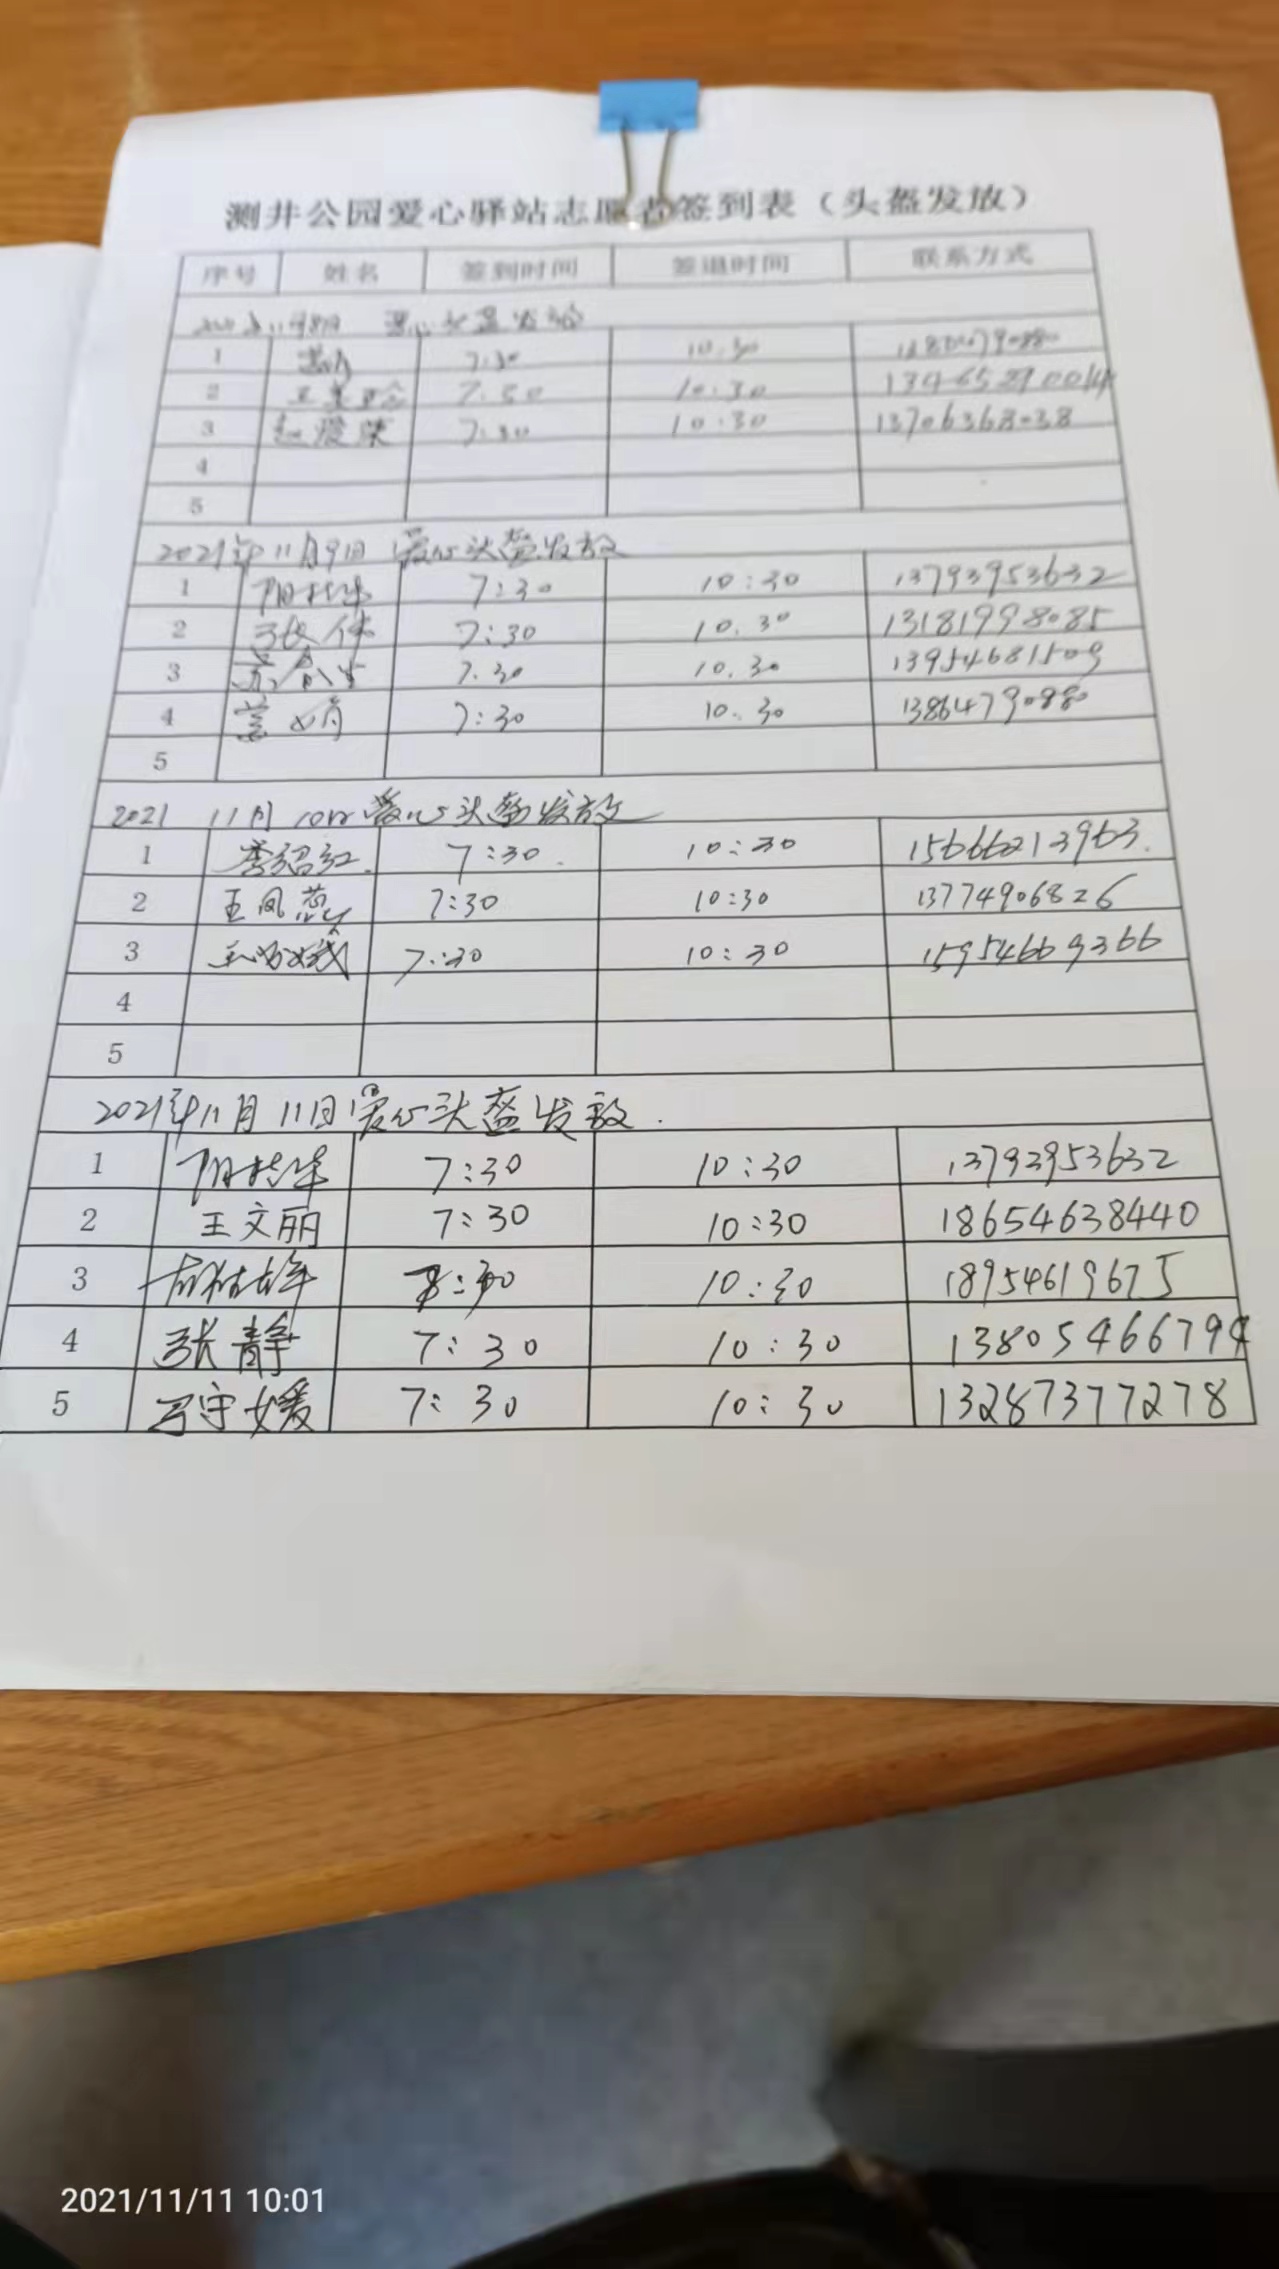 测井公园爱心驿站志愿者签到表（头盔发放）
序号 姓名 签到时间 签退时间 联系方式
1 7:30 10:30
2 7:30 10:30
3 赵爱荣 7:30 10:30 13706368038
4
5
2021年11月9日 爱心头盔发放
1 7:30 10:30 13793953632
2 张伟 7:30 10.30 13181998085
3 7.30 10.30 13954681509
4 7:30 10.30 1386479088
5
2021 11月10日 爱心头盔发放
1 李绍红. 7:30. 10:30 15666213963.
2 王凤燕 7:30 10:30 13774906826
3 7:30 10:30 15954669366
4
5
2021年11月11日爱心头盔发放.
1 7:30 10:30 13793953632
2 王文丽 7:30 10:30 18654638440
3 10:30 18954619675
4 张静 7:30 10:30 13805466794
5 马守媛 7:30 10:30 13287377278
2021/11/11 10:01